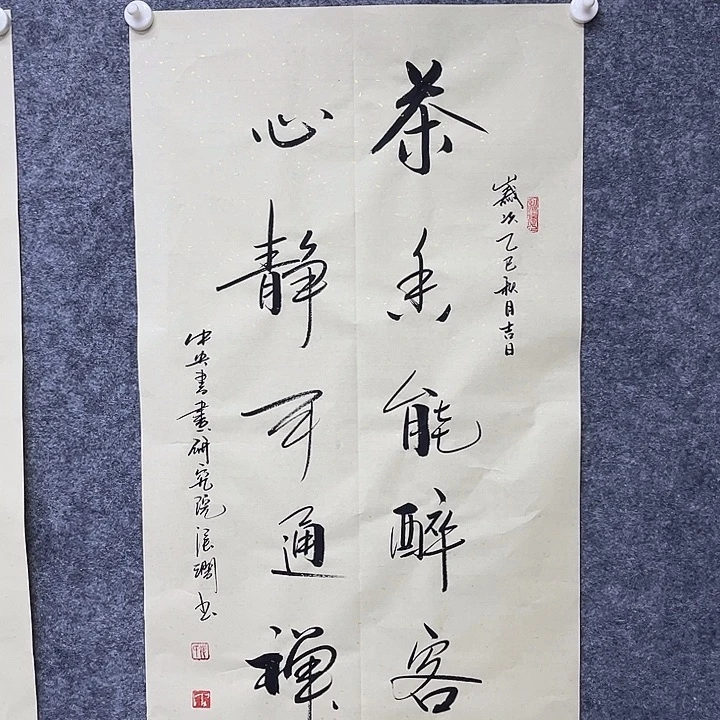 歲次乙巳秋月吉日
茶香能醉客
心静可通禅
中央書畫研究院
书